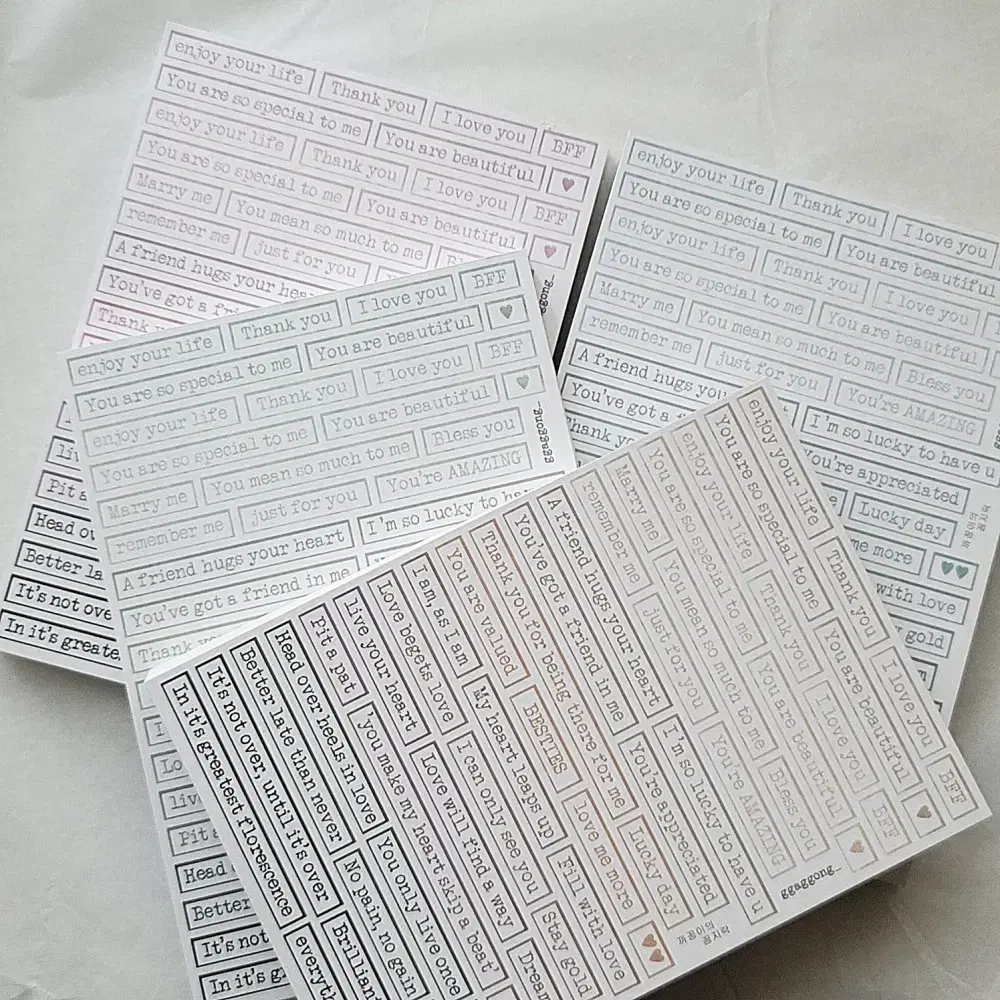 enjoy your life Thank you I love you BFF
You are so special to me You are beautiful
enjoy your life Thank you I love you BFF
You are so special to me You are beautiful
Marry me You mean so much to me
remember me just for you
A friend hugs your hear
You've got a fri
Thank
ggong_
liv
Pit a
Head ov
Better la
It's not ove
In it's greate
enjoy your life Thank you I love you
You are so special to me You are beautiful
enjoy your life Thank you I love you
You are so special to me You are beautiful
Marry me You mean so much to me Bless you
remember me just for you You're AMAZING
A friend hugs you I'm so lucky to have u
You've got a f You're appreciated
Thank you Lucky day
me more
with love
gold
enjoy your life Thank you I love you BFF
You are so special to me You are beautiful
enjoy your life Thank you I love you BFF
You are so special to me You are beautiful
Marry me You mean so much to me Bless you
remember me just for you You're AMAZING
A friend hugs your heart I'm so lucky to ha
You've got a friend in me
Thank you
ggaggong_
I
Lo
live
Pit a
Head
Better
It's not
In it's g
enjoy your life Thank you I love you BFF
You are so special to me You are beautiful
enjoy your life Thank you I love you BFF
You are so special to me You are beautiful
Marry me You mean so much to me Bless you
remember me just for you You're AMAZING
A friend hugs your heart I'm so lucky to have u
You've got a friend in me You're appreciated
Thank you for being there for me Lucky day
You are valued BESTIES love me more
I am, as I am My heart leaps up Fill with love
Love begets love I can only see you Stay gold
live your heart Love will find a way Dream
Pit a pat you make my heart skip a beat'
Head over heels in love You only live once
Better late than never No pain, no gain
It's not over, until it's over Brilliant
In it's greatest florescence everyth
ggaggong_
까꽁이의
꽁지락